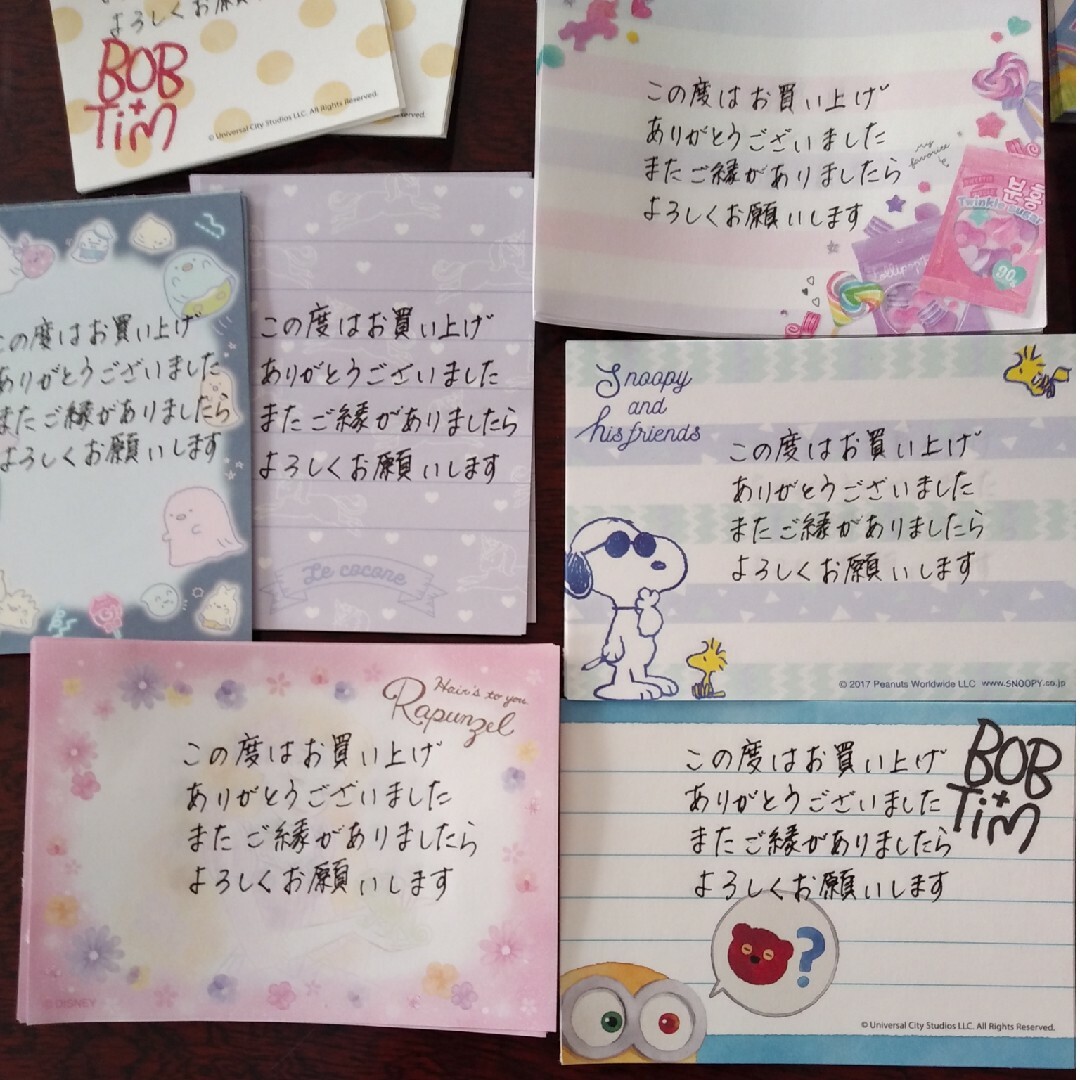 よろしくお願い
BOB
+
TiM
© Universal City Studios LLC. All Rights Reserved.
Reserved.
この度はお買い上げ
ありがとうございました
またご縁がありましたら
よろしくお願いします
my
favorite
분홍
Twinkle sugar
90
Lollipop
この度はお買い上げ
ありがとうございました
またご縁がありましたら
よろしくお願いします
この度はお買い上げ
ありがとうございました
またご縁がありましたら
よろしくお願いします
Le cocone
Snoopy
and
his friends
この度はお買い上げ
ありがとうございました
またご縁がありましたら
よろしくお願いします
© 2017 Peanuts Worldwide LLC www.SNOOPY.co.jp
Hair's to you
Rapunzel
この度はお買い上げ
ありがとうございました
またご縁がありましたら
よろしくお願いします
© DISNEY
BOB
+
TiM
この度はお買い上げ
ありがとうございました
またご縁がありましたら
よろしくお願いします
?
© Universal City Studios LLC. All Rights Reserved.